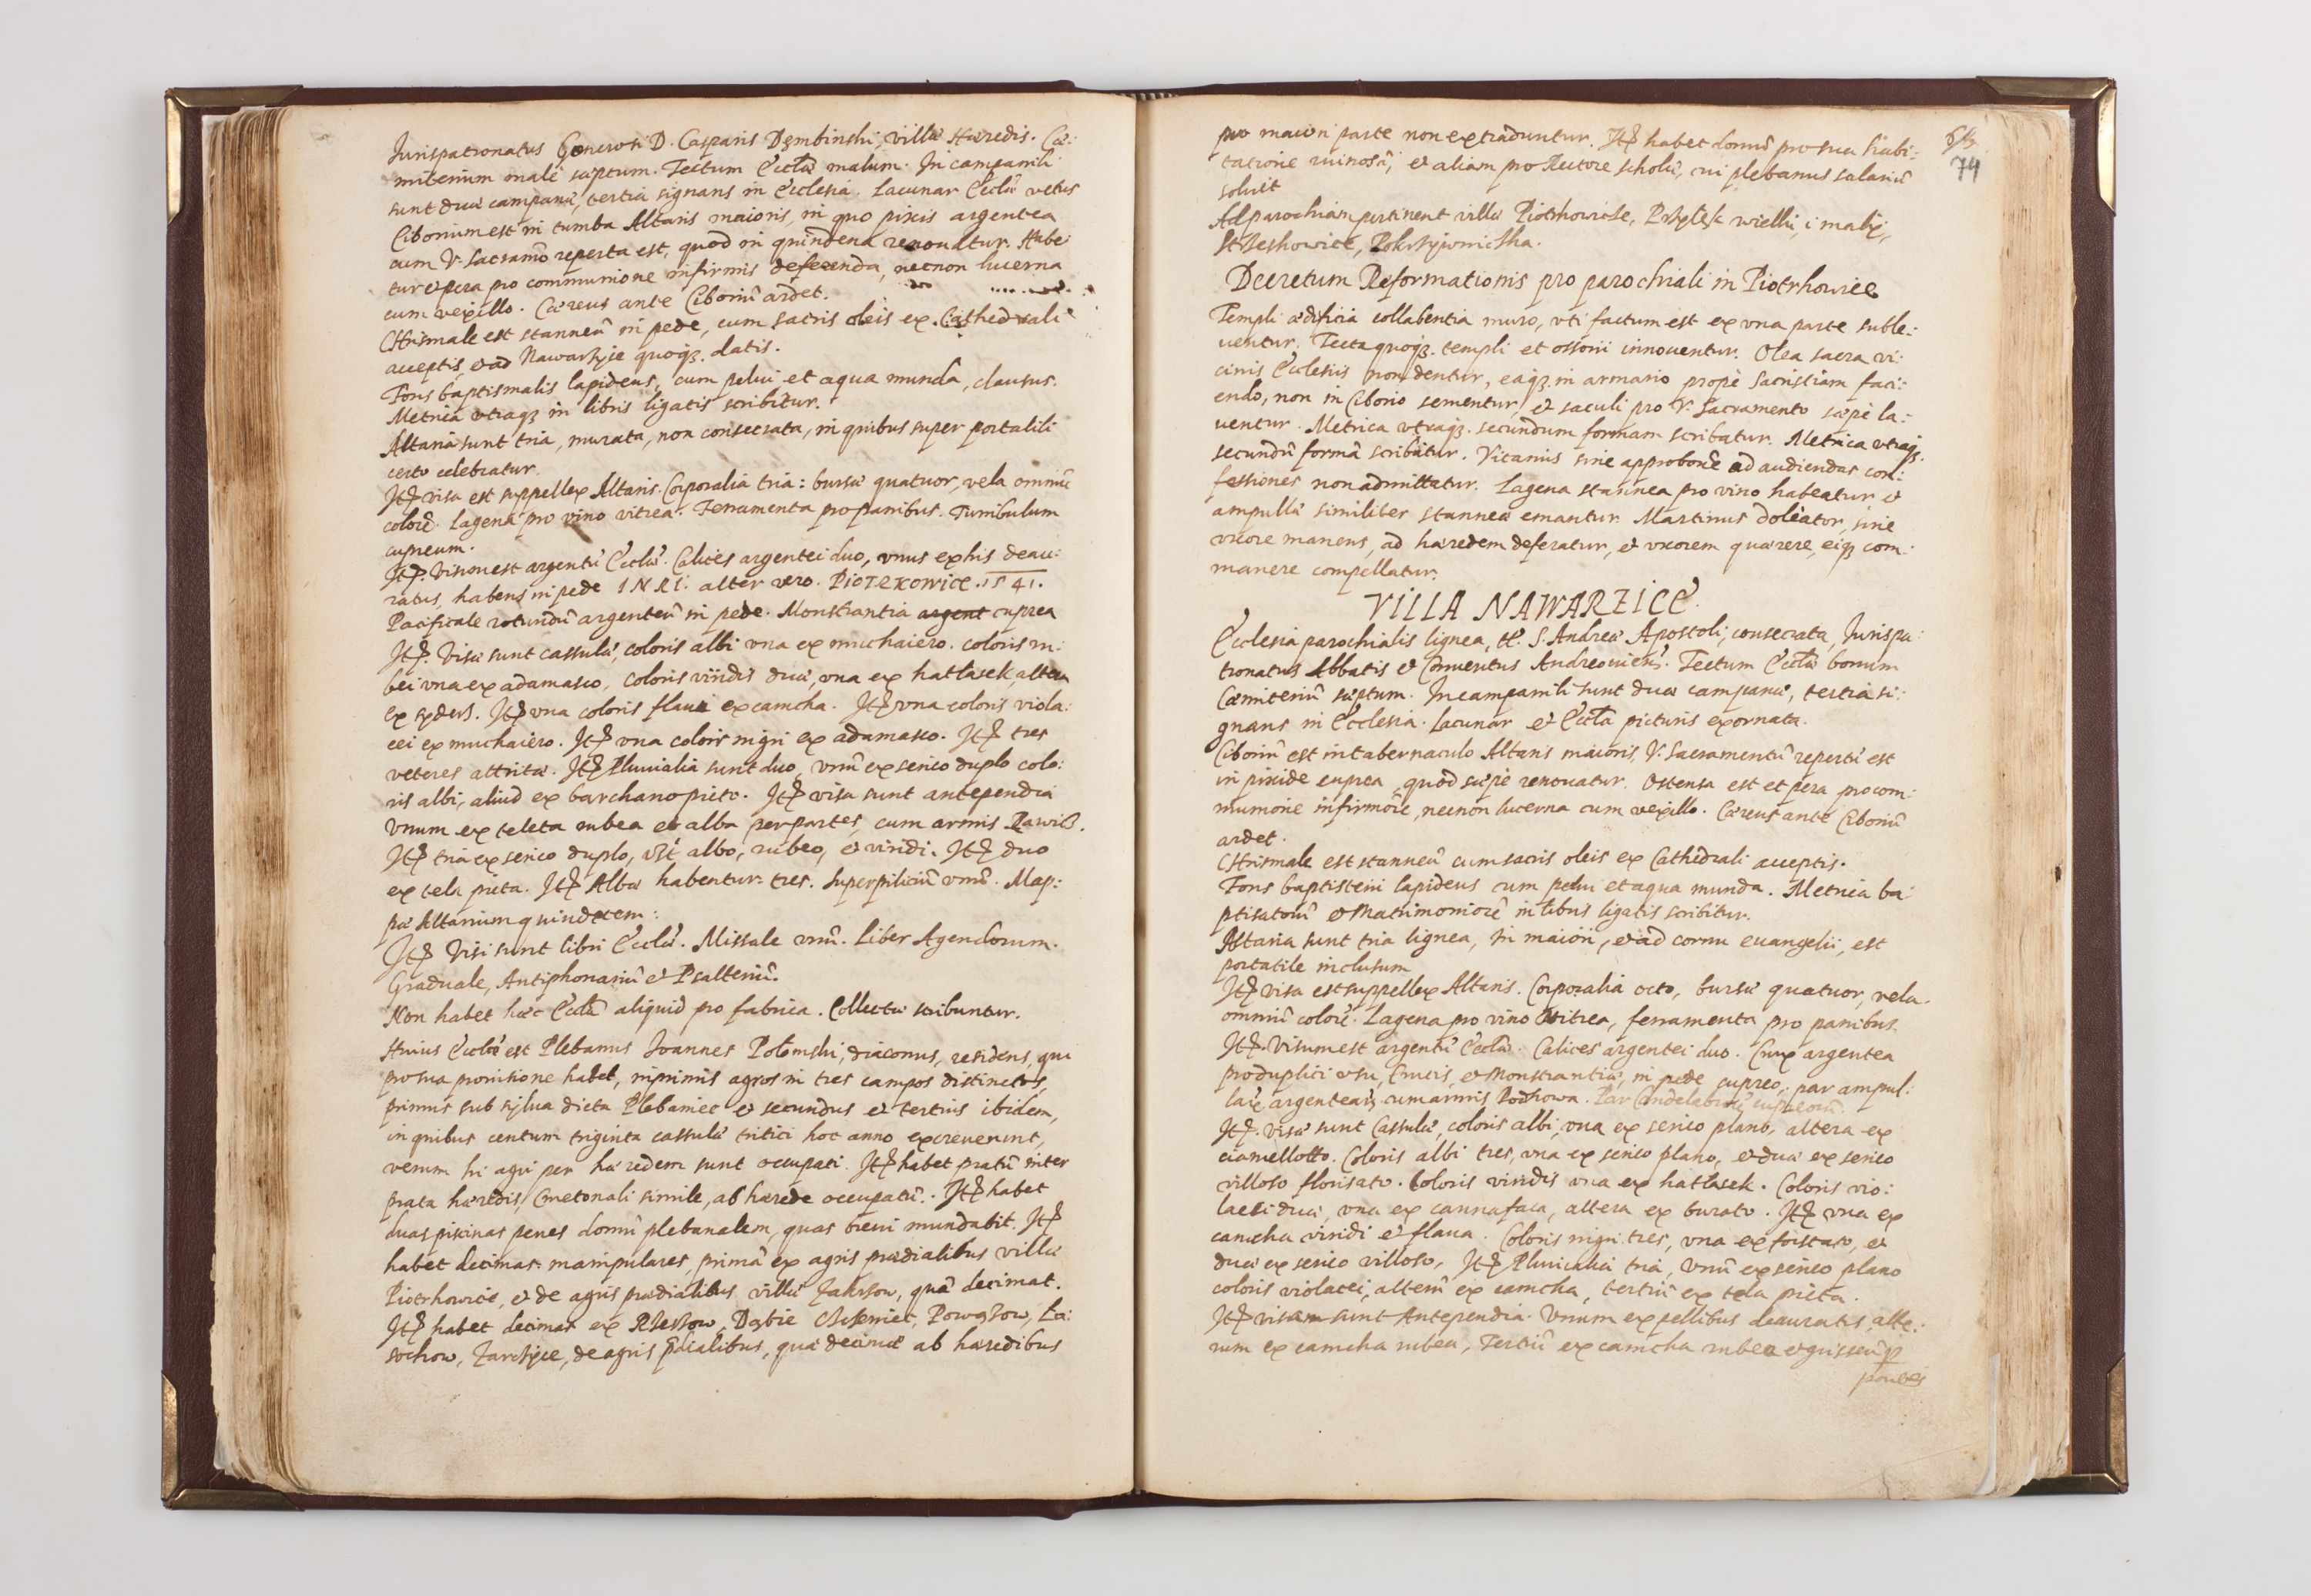 Jurispatronatus Generosi D. Casparis Dembinski, villæ Hæredis. Cæ:
miterium male sæptum. Tectum Eccłæ malum. In campanili
sunt duæ campanæ, tertia signans in Ecclesia. Lacunar Eccłæ vetus
Ciborium est in tumba Altaris maioris, in quo pixis argentea
cum V. Sacramto reperta est, quod in quindena renouatur. Habe
tur et pera pro communione infirmis deferenda, necnon lucerna
cum vexillo. Cæreus ante Ciboriũ ardet.
Chrismale est stanneũ in pede, cum sacris oleis ex Cathedrali
acceptis, et ad Nawarzyce quoqз. datis.
Fons baptismalis lapideus, cum pelui et aqua munda, clausus.
Metrica vtraqз in libris ligatis scribitur.
Altaria sunt tria, murata, non consecrata, in quibus super portatili
certo celebratur.
Itꝫ visa est suppellex Altaris. Corporalia tria: bursæ quatuor, vela omniũ
colorẽ. Lagena pro vino vitrea. Ferramenta pro panibus. Turribulum
cupreum.
Itꝫ. Visum est argentũ Eccłæ. Calices argentei duo, vnus ex his deau:
ratus, habens in pede INRI. alter vero. PIOTRKOWICE. 1541.
Pacificale rotundũ argenteũ in pede. Monstrantia argent cuprea
Itꝫ. Visæ sunt cassulæ, coloris albi vna ex muchaiero. coloris ru:
bei vna ex adamasco, coloris viridis duæ, vna ex hatłasek, altera
ex Itꝫ vna coloris flaui ex camcha. Itꝫ vna coloris viola:
cei ex muchaiero. Itꝫ vna coloris nigri ex adamasco. Itꝫ tres
veteres attritæ. Itꝫ Pluuialia sunt duo, vnũ ex serico duplo colo:
ris albi, aliud ex barchano picto. Itꝫ visa sunt antependia
vnum ex teleta rubea et alba per partes, cum armis Rawicz.
Itꝫ tria ex serico duplo, vꝫt albo, rubeo, et viridi. Itꝫ duo
ex tela picta. Itꝫ Albæ habentur tres. Superpiliciũ vnũ. Map:
pæ Altarium quindecem:
Itꝫ Visi sunt libri Eccłæ. Missale vnũ. Liber Agendorum.
Graduale, Antiphonariũ et Psalteriũ.
Non habet hæc Eccła aliquid pro fabrica. Collectæ scribuntur.
Huius Eccłæ est Plebanus Ioannes Potomski, diaconus, residens, qui
pro sua prouisione habet, inprimis agros in tres campos distinctos,
primus sub sylua dicta Plebaniec et secundus et tertius ibidem,
in quibus centum triginta cassulæ tritici hoc anno excreuerunt,
verum hi agri per hæredem sunt occupati. Itꝫ habet pratũ inter
prata hæredis, Cmetonali simile, ab hærede occupatũ. Itꝫ habet
duas piscinas penes domũ plebanalem, quas breui mundabit. Itꝫ
habet decimas manipulares, primã ex agris prædialibus villæ
Piotrkowice, et de agris prædialibus villæ Zakrzow, quã decimat.
Itꝫ habet decimas ex Dębie Powązow, La:
sochow, Zarczyce, de agris p̃dialibus, quæ decimæ ab hæredibus
pro maiori parte non extraduntur. Itꝫ habet domũ pro sua habi:
tatione ruinosã, et aliam pro Rectore scholæ, cui plebanus salariũ
soluit
Ad parochiam pertinent villæ Piotrkowice, Przyłęk wielki, i małÿ,
Pokrzywnicka.
Decretum Reformationis pro parochiali in Piotrkowice
Templi ædificia collabentia muro, vti factum est ex vna parte suble:
uentur. Tecta quoqз. templi et ossorii innouentur. Olea sacra vi:
cinis Ecclesiis non dentur, eaqз. in armario prope Sacristiam faci:
endo, non in Ciborio seruentur, et saculi pro V. Sacramento sæpe la:
uentur. Metrica vtraqз. secundum formam scribatur. Metrica vtraqз.
secundũ formã scribatur. Vicarius sine approbone ad audiendas con:
fessiones non admittatur. Lagena stannea pro vino habeatur et
ampullæ similiter stanneæ emantur. Martinus doleator, sine
vxore manens, ad hæredem deferatur, et vxorem quærere, eiqз com:
manere compellatur.
VILLA NAWARZICE.
Ecclesia parochialis lignea, tt. S. Andreæ Apostoli, consecrata, Iurispa:
tronatus Abbatis et Conuentus Andreouien̄. Tectum Eccłæ bonum
Cæmiteriũ sæptum. In campanili sunt duæ campanæ, tertia si:
gnans in Ecclesia. Lacunar et Eccła picturis exornata.
Ciboriũ est in tabernaculo Altaris maioris, V. Sacramentũ repertũ est
in pixide cuprea, quod sæpe renouatur. Ostensa est et pera pro com:
munione infirmorẽ, necnon lucerna cum vexillo. Cæreus ante Ciboriũ
ardet.
Chrismale est stanneũ cum sacris oleis ex Cathedrali acceptis.
Fons baptisterii lapideus cum pelui et aqua munda. Metrica ba:
ptisatorũ et Matrimoniorẽ in libris ligatis scribitur.
Altaria sunt tria lignea, in maiori, et ad cornu euangelii, est
portatile inclusum
Itꝫ visa est suppellex Altaris. Corporalia octo, bursæ quatuor, vela
omniũ colorẽ. Lagena pro vino vitrea, ferramenta pro panibus.
Itꝫ. Visum est argentũ Eccłæ. Calices argentei duo. Crux argentea
pro duplici vsu, Crucis, et Monstrantiæ, in pede cupreo, par ampul:
larẽ argentearẽ cum armis Podkowa. Par Candelabrorũ cupreorũ.
Itꝫ. visæ sunt Cassulæ, coloris albi, vna ex serico plano, altera ex
ciamellotto. Coloris albi tres, vna ex serico plano, et duæ ex serico
villoso florisato. Coloris viridis vna ex hatłasek. Coloris vio:
lacei duæ, vna ex cannafaca, altera ex burato. Itꝫ vna ex
camcha viridi et flaua. Coloris nigri tres, vna ex et
duæ ex serico villoso, Itꝫ Pluuialia tria, vnũ ex serico plano
coloris violacei, alterũ ex camcha, tertiũ ex tela picta.
Itꝫ visam sunt Antependia. Vnum ex pellibus deauratis, alte:
rum ex camcha rubea, Tertiũ ex camcha rubea et grisseũ p
partes
74